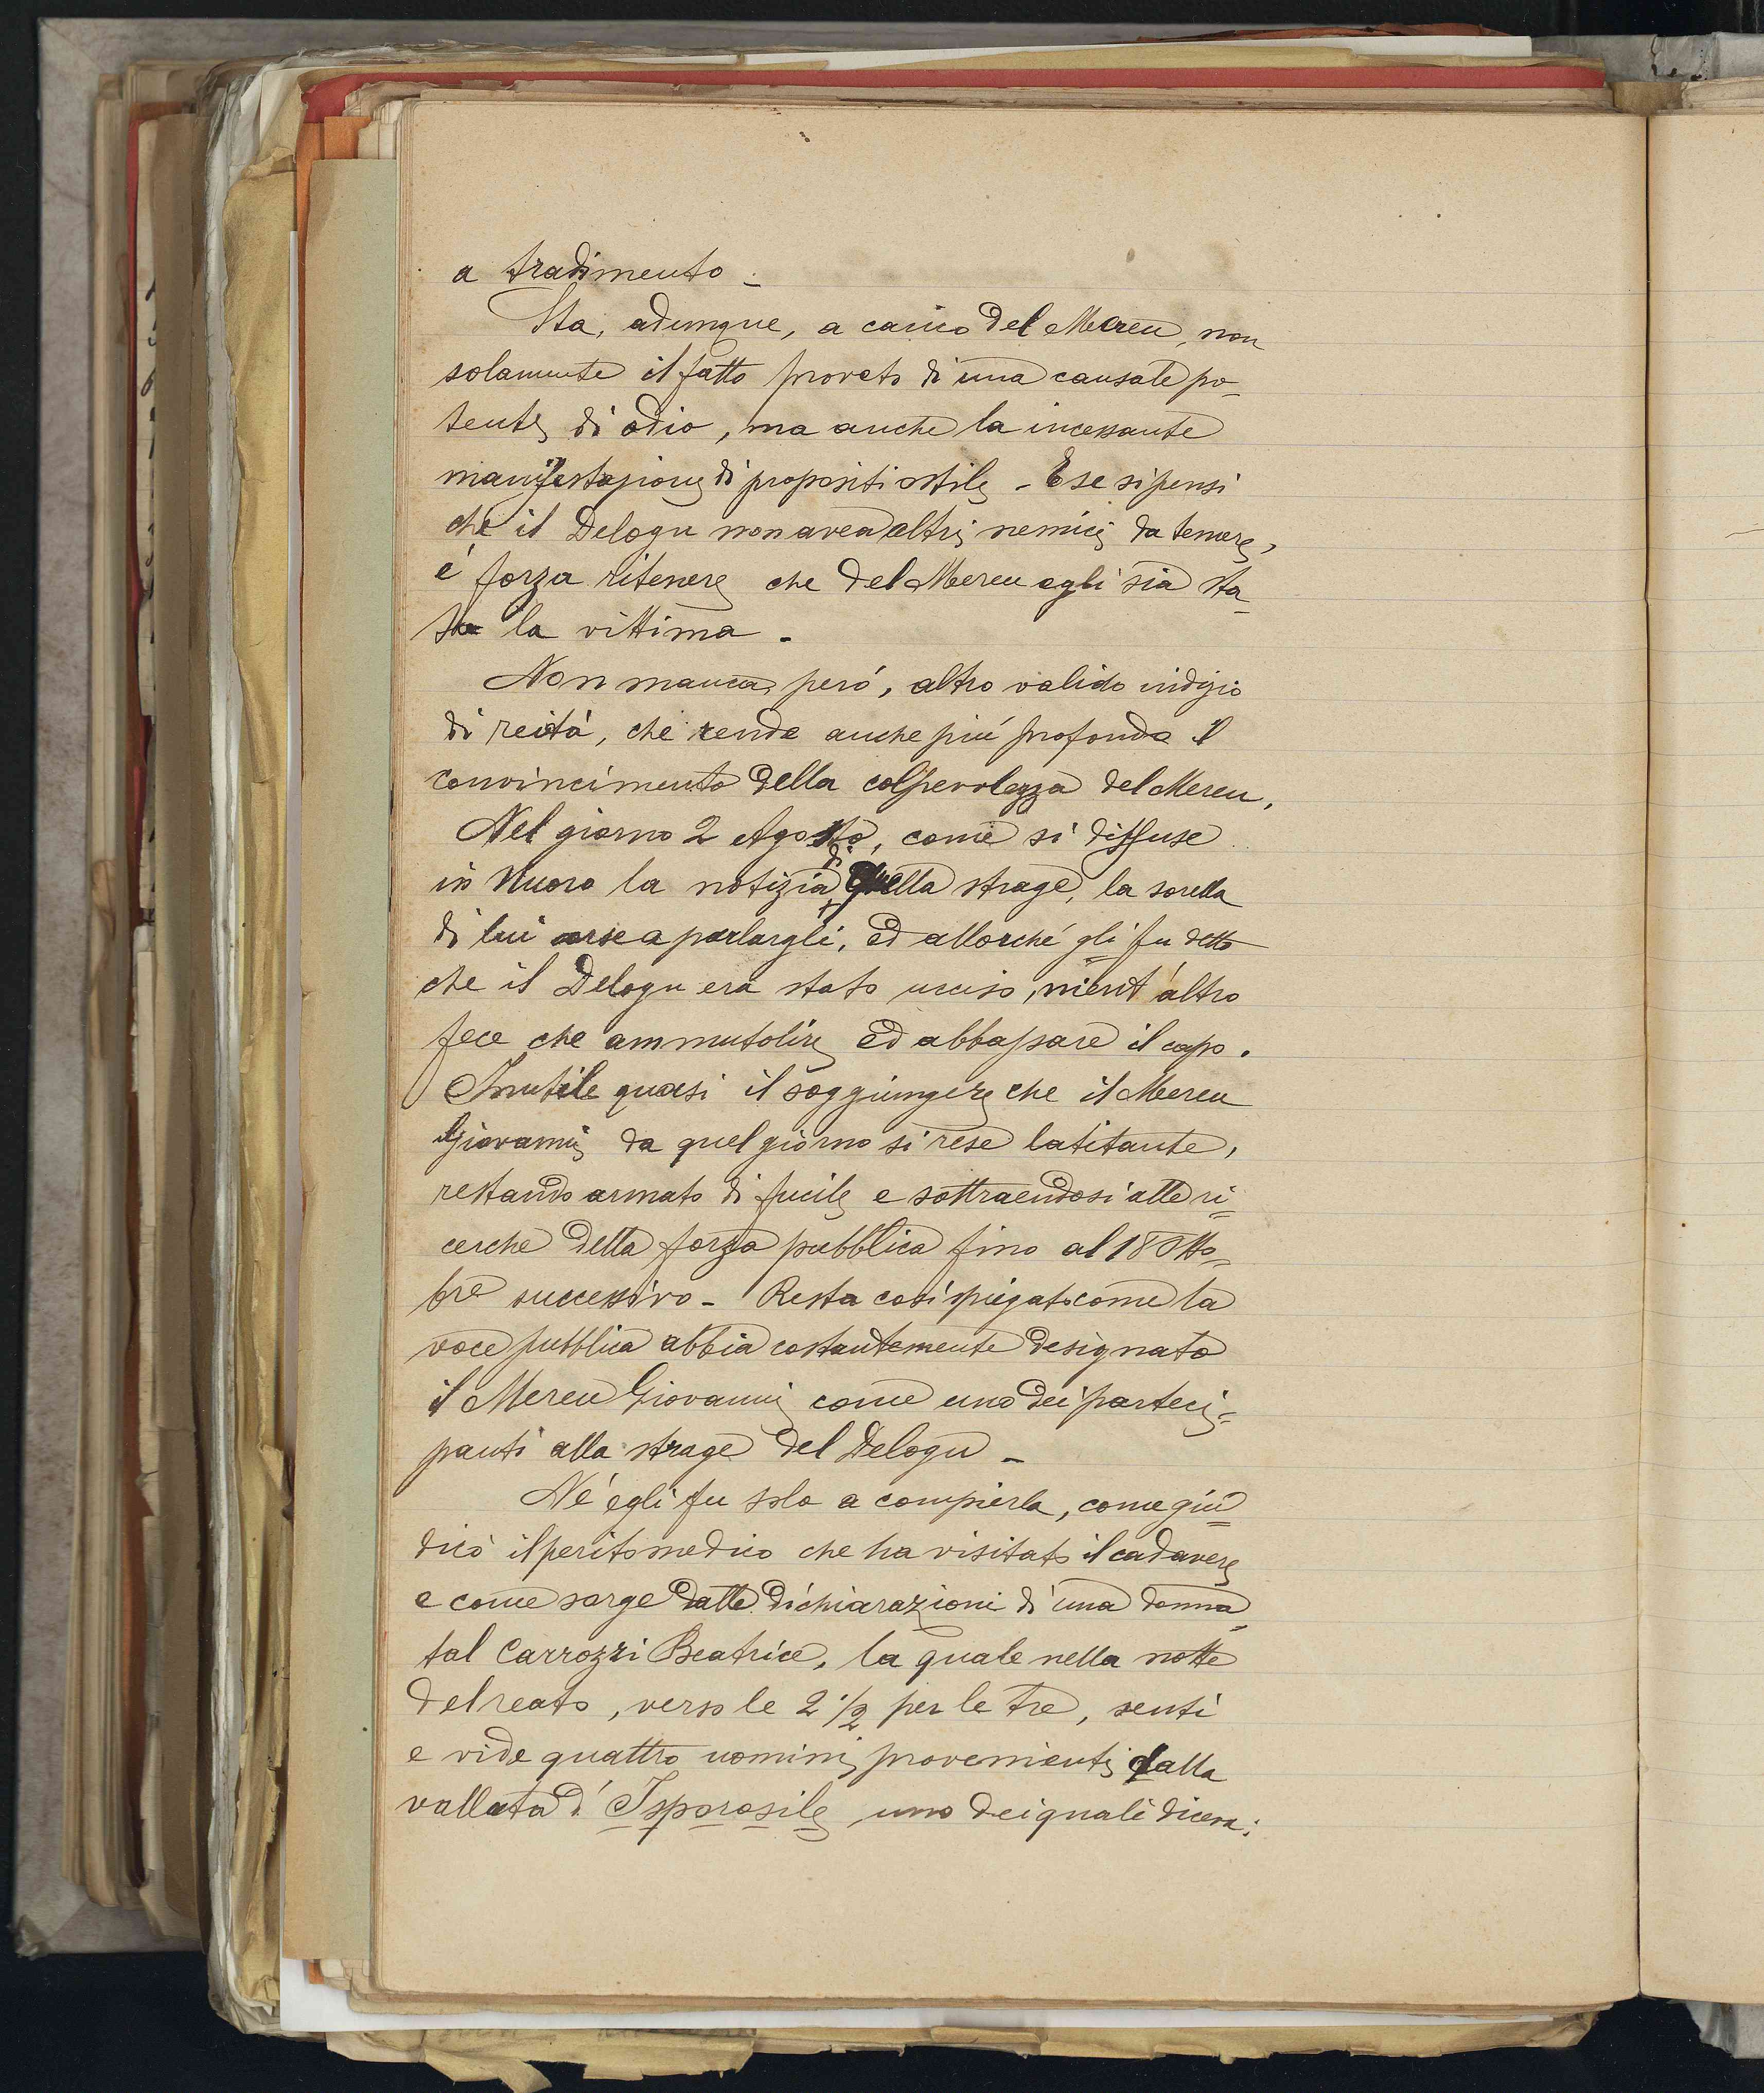 a tradimento -
Sta, adunque, a carico del Mereu, non
solamente il fatto provato di una causale po-
tente di odio, ma anche la incessante
manifestazione di propositi ostili - E se si pensi
che il Delogu non avea altri nemici da temere,
é forza ritenere che del Mereu egli sia sta-
to la vittima -
Non manca, peró, altro valido indizio
di reità, che rende anche piú profondo il
convincimento della colpevolezza del Mereu,
Nel giorno 2 Agosto, come si diffuse
in Nuoro la notizia di quella strage, la sorella
di lui corse a parlargli, ed allorché gli fu detto
che il Delogu era stato ucciso, nient'altro
fece che ammutolire ed abbassare il capo.
Inutile quasi il soggiungere che il Mereu
Giovanni da quel giorno si rese latitante,
restando armato di fucile e sottraendosi alle ri=
cerche della forza pubblica fino al 18 Otto=
bre successivo - Resta cosí spiegato come la
voce pubblica abbia costantemente designato
il Mereu Giovanni come uno dei parteci=
panti alla strage del Delogu -
Né egli fu solo a compierla, come giu=
dicò il perito medico che ha visitato il cadavere
e come sorge dalle dichiarazioni di una donna
tal Carrozzi Beatrice, la quale nella notte
del reato, verso le 2 1/2 per le tre, sentí
e vide quattro uomini provenienti dalla
vallata d'Isporosile uno dei quali diceva: